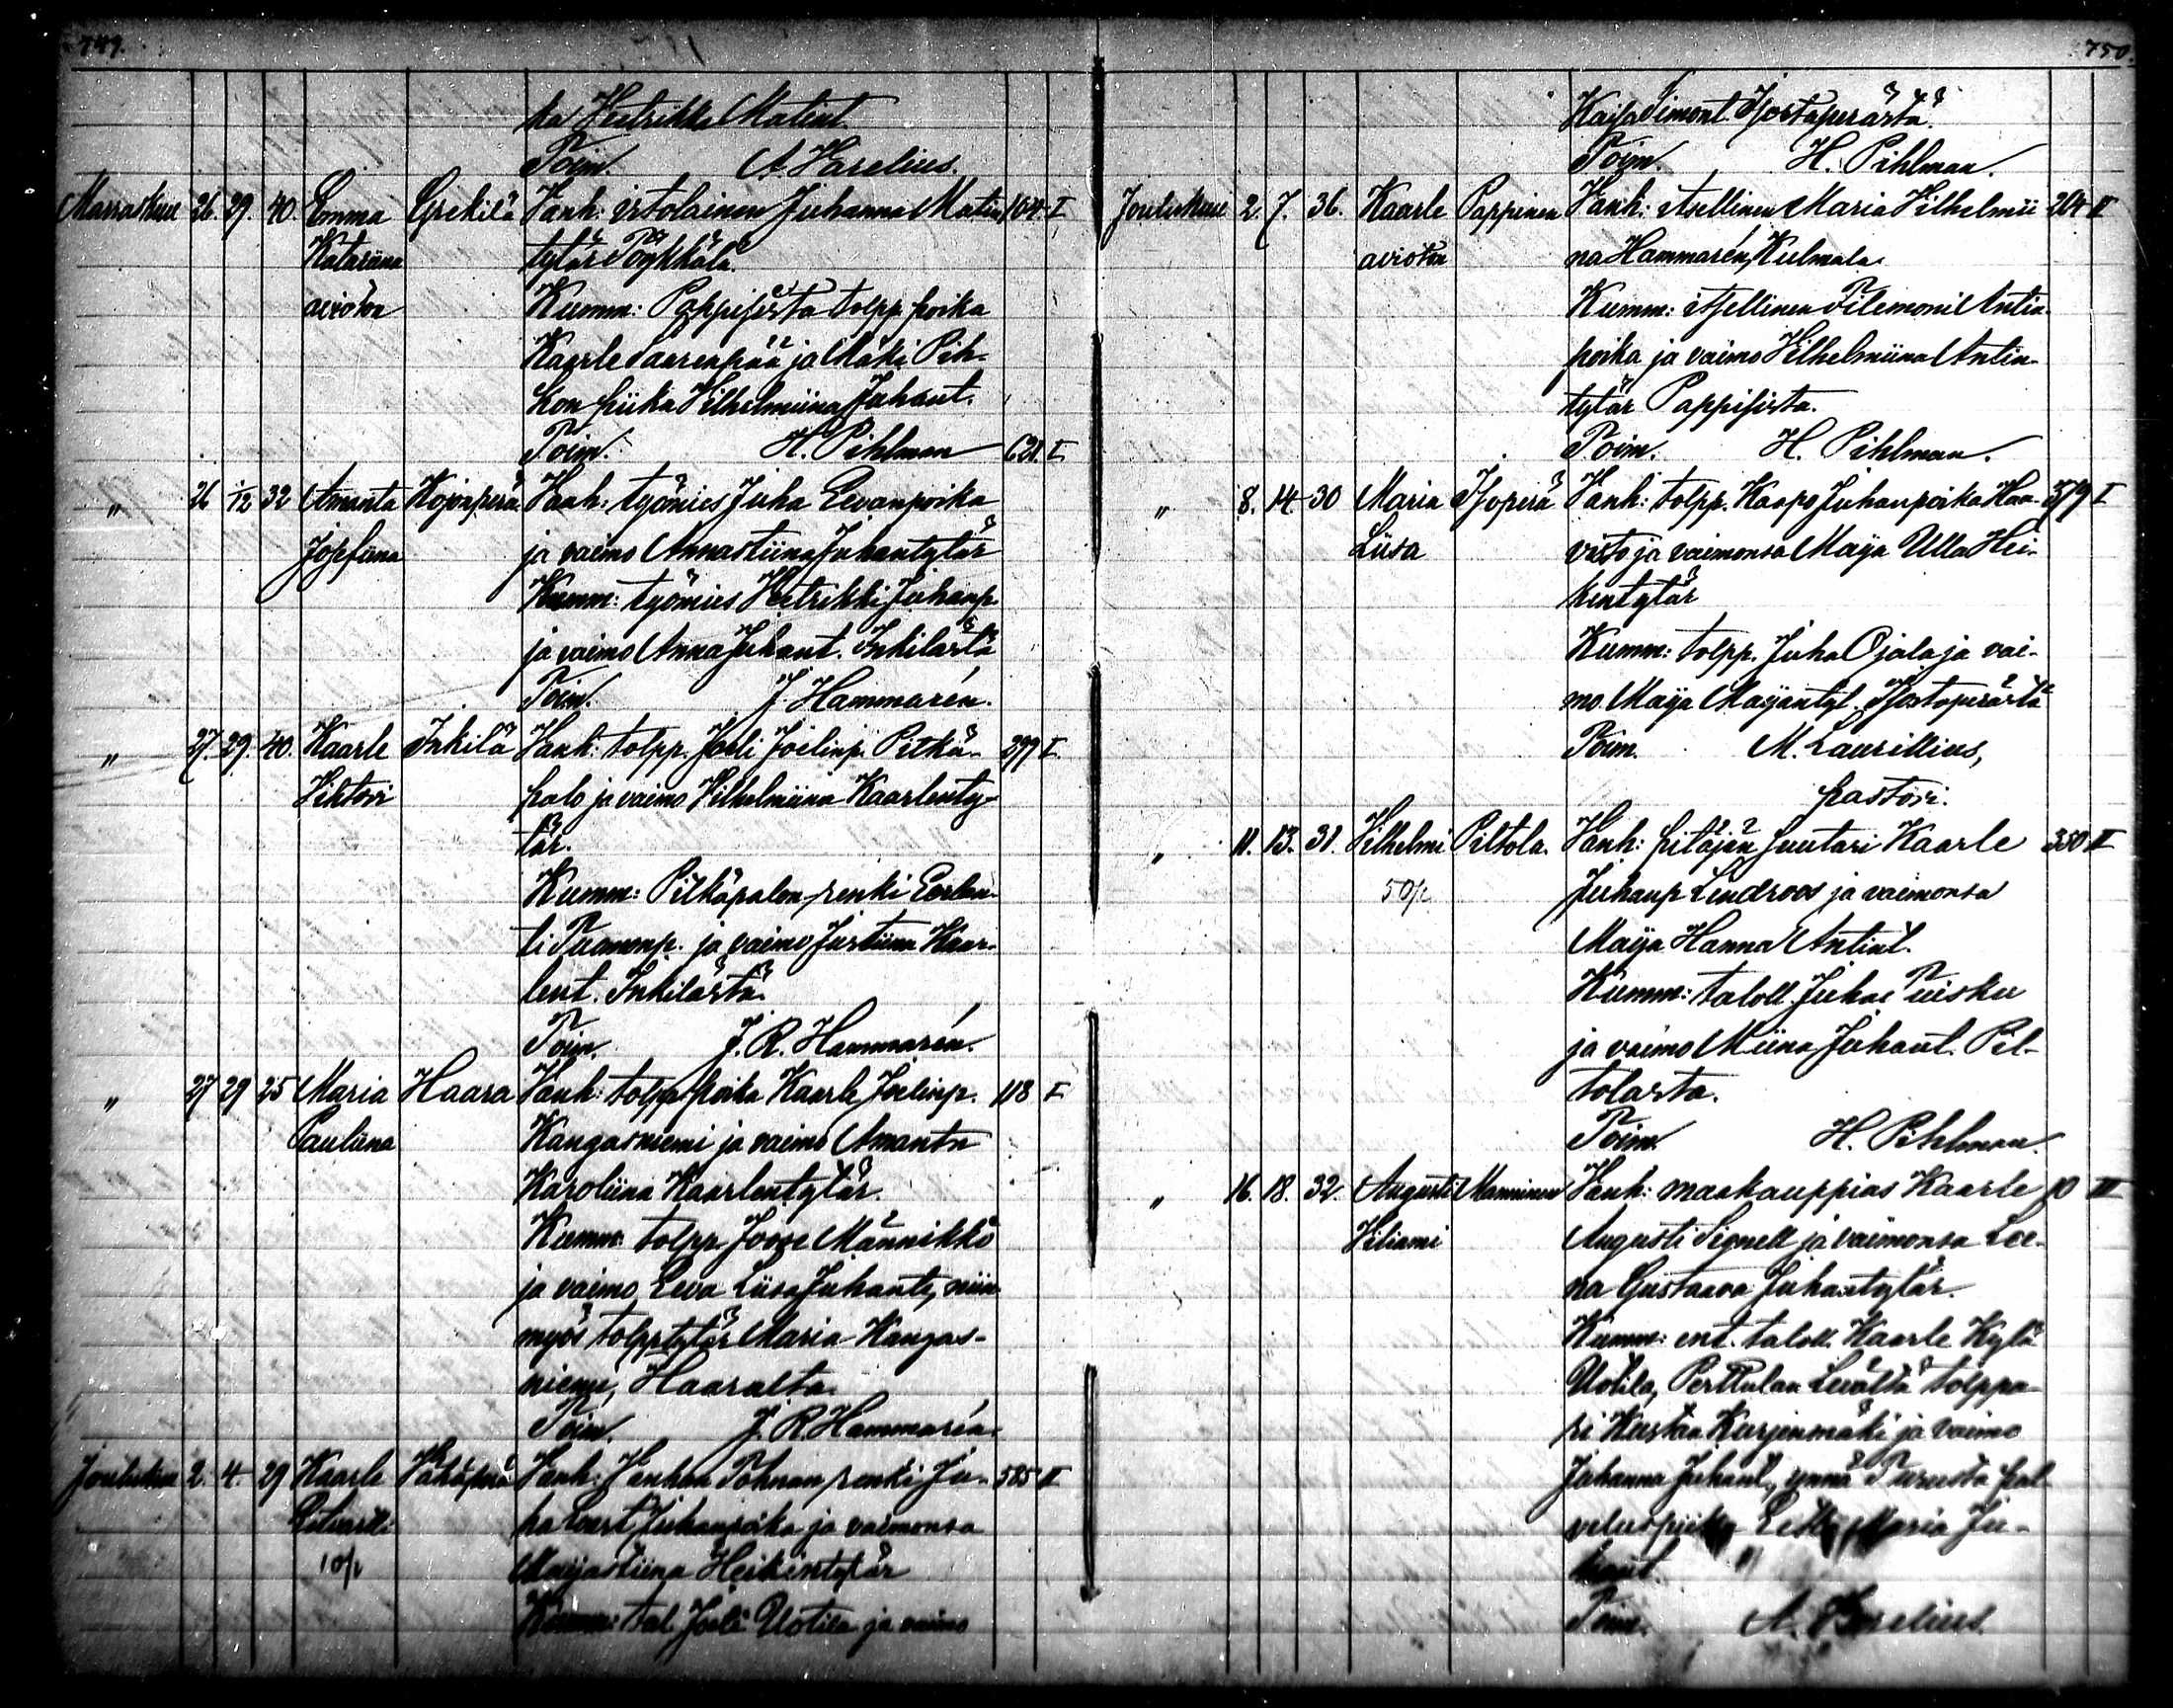 749.
ka Heetrikka Matint.
Toim. A Varelius.
Marraskuu 26. 29. 40. Emma Grekilä Vanh: irtolainen Juhanna Matin 104 I
Katariina tytär Pöykkälä.
avioton Kumm: Pappisista tolpp. poika
Kaarle Saarenpää ja Mäki Pih-
kon piika Vilhelmiina Juhant.
Toim. H. Pihlman 621. I
" 26 1/12 32 Amanta Kojonperä Vanh: työmies Juha Eevanpoika
Josefiina ja vaimo Annastiina Juhantytär
Kumm: työmies Heetrikki Juhanp.
ja vaimo Anna Juhant. Inkilästä
Toim. J. Hammarén.
" 27. 29. 40. Kaarle Inkilä Vanh: tolpp. Joeli Joelinp. Pitkä- 299 I.
Vihtori palo ja vaimo Vilhelmiina Kaarlenty-
tär.
Kumm: Pitkäpalon renki Eerlan-
ti Tuomonp. ja vaimo Justiina Kaar-
lent. Inkilästä.
Toim. J. R. Hammarén.
" 27 29 25 Maria Haara Vanh: tolpp. poika Kaarle Joelinp. 118 I
Pauliina Kangasniemi ja vaimo Amanta
Karoliina Kaarlentytär.
Kumm: tolpp. Joose Männikkö
ja vaimo Eeva Liisa Juhant, niin
myös tolpp.tytär Maria Kangas-
niemi, Haaralta.
Toim. J. R. Hammarén.
Joulukuu 2. 4. 29 Kaarle Vähäperä Vanh: Vanhan Pohnan renki Ju- 585 II
Etuartti ha Eevert Juhanpoika ja vaimonsa
10/p Maijastiina Heikintytär
Kumm: tal. Joeli Uotila ja vaimo
750.
Kaisa Simont. Isostaperästä.
Toim. H. Pihlman.
Joulukuu 2. 7. 36. Kaarle Pappinen Vanh: itsellinen Maria Vilhelmii 264 II
avioton na Hammarén, Kulmala.
Kumm: itsellinen Filemoni Antin-
poika ja vaimo Vilhelmiina Antin-
tytär Pappisista.
Toim. H. Pihlman.
" 8. 14. 30 Maria Isoperä Vanh: tolpp. Kaapo Juhanpoika Haa- 379 I
Liisa visto ja vaimonsa Maija Ulla Hei-
kintytär
Kumm: tolpp. Juha Ojala ja vai-
mo Maija Maijantyt. Isostaperästä
Toim. M. Laurillius,
pastori.
" 11. 13. 31. Vilhelmi Piltola. Vanh: pitäjän suutari Kaarle 350 II
50/p Juhanp Lindroos ja vaimonsa
Maija Hanna Antint.
Kumm: taloll. Juha Puisku
ja vaimo Miina Juhant. Pil-
tolasta.
Toim. H. Pihlman.
" 16. 18. 32. Augusti Manninen Vanh: maakauppias Kaarle 10 III
Viliami Augusti Signell ja vaimonsa Lee-
na Gustaava Juhantytär.
Kumm: ent. taloll. Kaarle Kylä
Uotila, Perttulan Livältä tolppa-
ri Kustaa Kurjenmäki ja vaimo
Juhanna Juhant, ynnä Purusta pal
veluspiika Maria Ju-
hant.
Toim. A. Varelius.